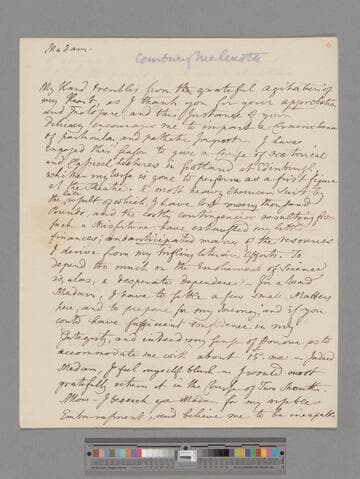 Madam.
Courtney Melmoth
My Hand trembles from the grateful agitation of
my Heart, as I thank you for your approbation
and Indulgence, and this Instance of your
Delicacy encourages me to impart a Circumstance
of particular and pathetic Import. I have
engaged this Season to give a Course of oratorical
and Classical Lectures in Scotland at Edinburgh
whither my wife is gone to perform as a first figure
at the Theatre. A most heavy Chancery Suit by
the result of which I have lost many thousand
Pounds, and the costly contingencies resulting from
such a Misfortune have exhausted my little
finances, and anticipated many of the resources
I derive from my trifling literary Efforts. To
depend too much on the Emolument of Science
is, alas, a desperate Dependance. In a Word
Madam, I have to settle a few Small Matters
here, and to prepare for my Journey, and if you
could have sufficient Confidence in my
Integrity, and indeed my Sense of Honour, as to
accommodate me with about 15 — Indeed
Madam, I feel myself blush — I would most
gratefully return it in the Course of Two Months.
Allow — I beseech you Madam for my
Embarrassment, and believe me to be incapable